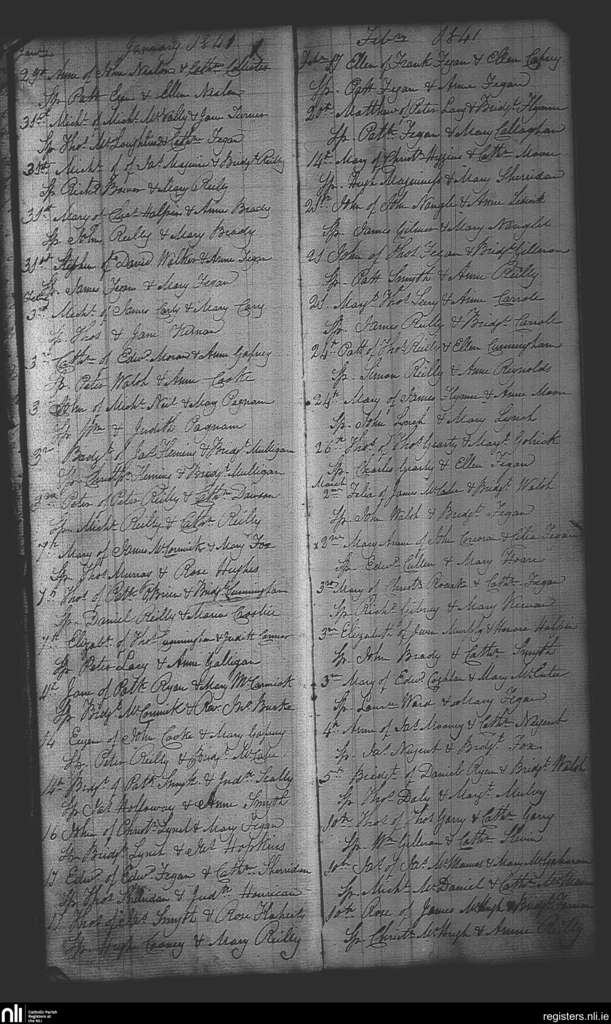 January 1841
29th Anne of John Nealon & Cathn
Sp. Patt Egan & Ellen Nealon
31st Michl of Michl McNally & Jane
Sp. Thos McLoughlin & Cathn Fegan
31st Michl of Jas Maguire & Bridgt Reilly
Sp. Richd Bower & Mary Reilly
31st Mary of Chrisr Halpin & Anne Brady
Sp. John Reilly & Mary Brady
31st Stephen of David Walker & Anne Fegan
Feby
Sp. James Fegan & Mary Fegan
3rd Michl of James Carly & Mary Cary
Sp. Thos & Jane Kernan
3rd Cathn of Edwd Moran & Anne Gafney
Sp. Peter Walsh & Anne Cooke
3 John of Michl Neil & Mary Pagnam
Sp. Wm & Judith Pagnam
3rd Bridgt of Jas Fleming & Bridgt Mulligan
Sp. Christr Fleming & Bridgt Mulligan
Peter of Peter Reilly & Cathn Dawson
Sp. Michl Reilly & Cathn Reilly
7th Mary of James McCormick & Mary Fox
Sp. Thos Murray & Rose Hughes
7th Thos of Patk O'Brien & Bridgt Cunningham
Sp. Daniel Reilly & Maria Crosbie
7th Elizabt of Thos Cunningham & Judith Connor
Sp. Peter Lacy & Anne Galligan
Jane of Patk Ryan & Mary McCormick
Sp. Bridgt McCormick & Rev. Jno Burke
14 Eugen of John Cooke & Mary Gafney
Sp. Peter Reilly & Bridgt McCabe
14th Bridgt of Patk Smyth & Judth Scally
Sp. Jas Holloway & Anne Smyth
16 John of Christr Lynch & Mary Fegan
Sp. Bridgt Lynch & Jas Hopkins
17 Edwd of Edwd Fegan & Cathn Sheridan
Sp. Thos Sheridan & Judth Hourican
17 Thos of Jas Smyth & Rose Flaherty
Sp. Hugh Cooney & Mary Reilly
Feby 1841
Feby 17 Ellen of Frank Fegan & Ellen
Sp. Patt Fegan & Anne Fegan
20th Matthew of Peter Lacy & Bridgt Flynne
Sp. Patk Fegan & Mary Callaghan
14th Mary of Christr Higgins & Cathn Moore
Sp. Hugh Maguiness & Mary Sheridan
21st John of John Naughl & Anne
Sp. James Gilmer & Mary Naughl
21 John of Thos Fegan & Bridgt Gilleran
Sp. Patt Smyth & Anne Reilly
21 Margt Thos Seery & Anne Carroll
Sp. James Reilly & Bridgt Carroll
24th Patt of Thos Reilly & Ellen Cunningham
Sp. Simon Reilly & Anne Reynolds
24th Mary of James Flynne & Anne Moore
Sp. John Lynch & Mary Lynch
26th Thos of Thos Gearty & Margt
Sp. Charles Gearty & Ellen Fegan
March
2nd Felia of James McCabe & Bridgt Walsh
Sp. John Walsh & Bridgt Fegan
2nd Mary Anne of John Corcoran & Celia Fegan
Sp. Edwd Cullen & Mary Hoare
3rd Mary of Christr Roarke & Cathn Fegan
Sp. Richd Gibney & Mary Kernan
3rd Elizabth of Owen Murphy & Honora Halpin
Sp. John Brady & Cathn Smyth
3rd Mary of Edwd Coghlan & Mary McEntee
Sp. Laurce Ward & Mary Fegan
4th Anne of Jas Mooney & Cathn Nugent
Sp. Jas Nugent & Bridgt Fox
5th Bridgt of Daniel Ryan & Bridgt Walsh
Sp. Thos Daly & Margt Mulvy
10th Thos of Thos Garry & Cathn Garry
Sp. Wm Gilleran & Cathn Slevin
10th Jas of Jas McManus & Mary
Sp. Michl McDaniel & Cathn
10th Rose of James McHugh & Bridgt
Sp. Christr McHugh & Anne Reilly
nli
Catholic Parish
Registers at
the NLI
registers.nli.ie